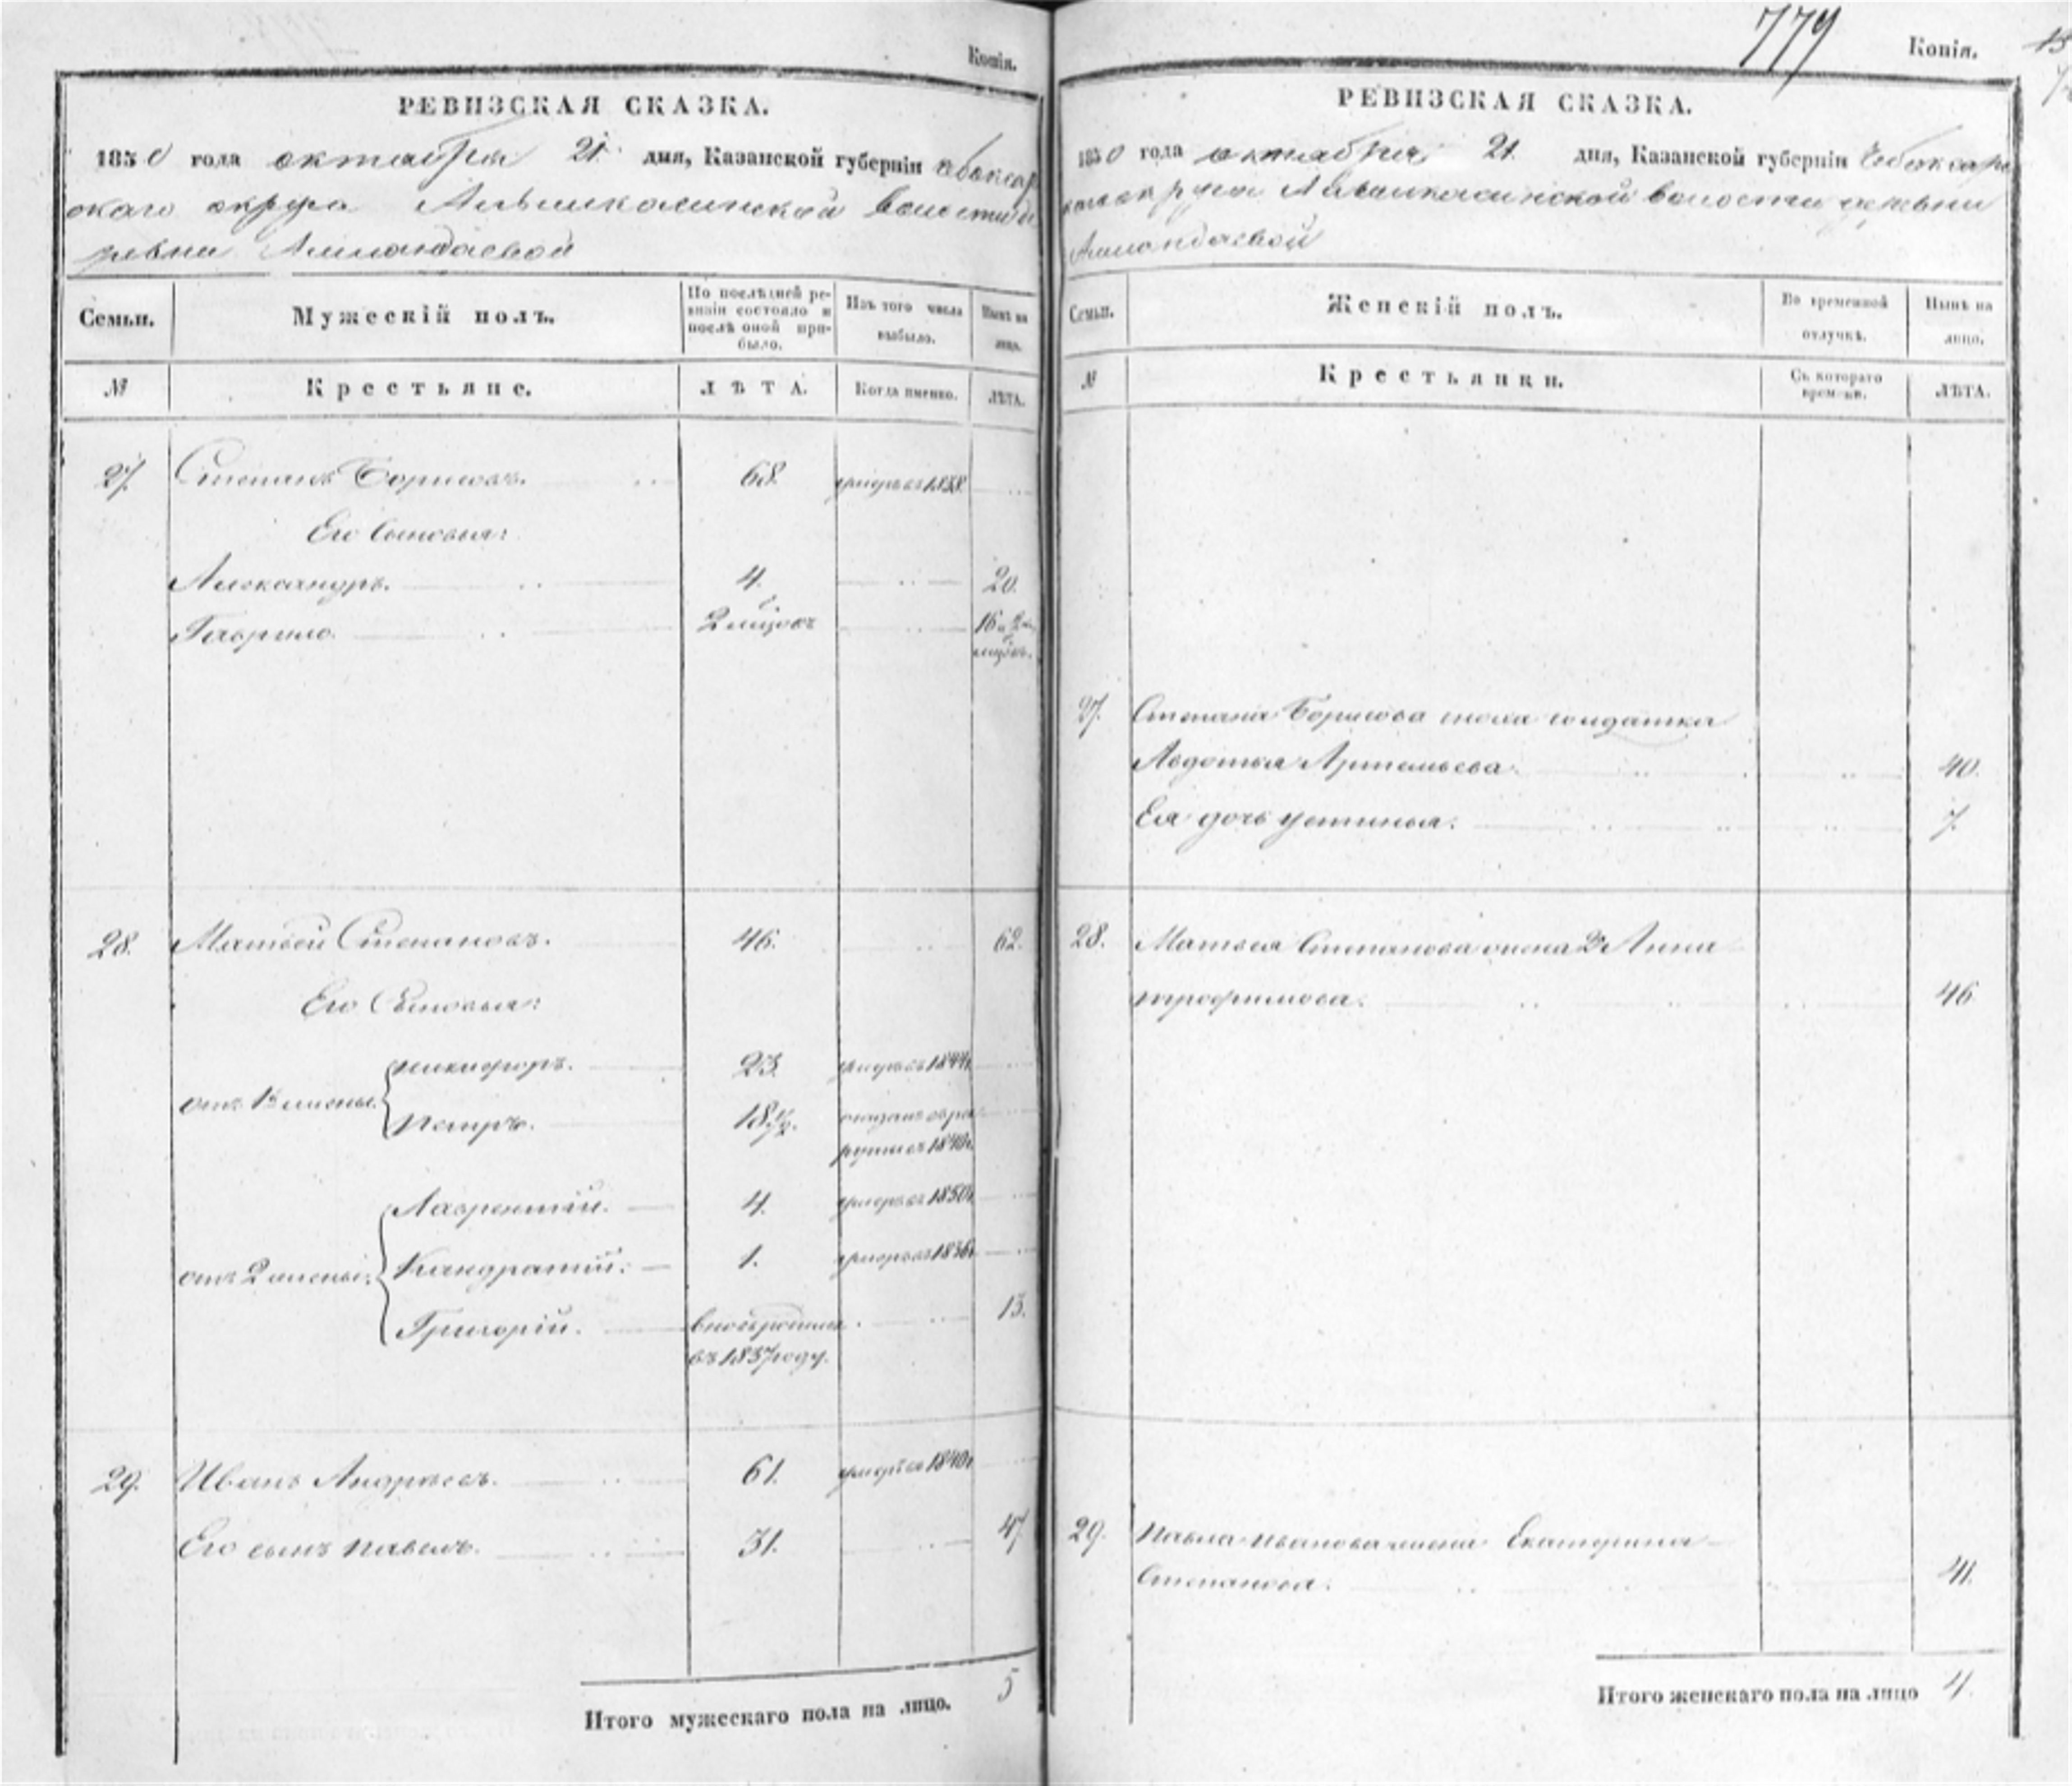 Копія.
РЕВИЗСКАЯ СКАЗКА.
1850 года октября 21 дня, Казанской губерніи Чебоксар
скаго округа волости де
ревни
Семьи. Мужескій полъ. По послѣдней ре- Изъ того числа Нынѣ на
визіи состояло и
послѣ оной при- выбыло. лицо.
было.
№ Крестьяне. ЛѢТА. Когда именно. ЛѢТА.
27. Степанъ Борисовъ. 68. 1838
Его Сыновья:
Александръ. 4. 20.
Гаврило. 2 мѣцовъ 16
мѣцовъ.
28. Матвей Степановъ. 46. 62.
Его Сыновья:
Никифоръ. 23. 1844
отъ 1й жены.
Петръ. 18½.
1840г.
Лаврентій. 4. 1850г
отъ 2 жены. Кандратій. 1. 1836г
Григорій. 13.
въ 1837 году.
29. Иванъ Андреевъ. 61. 1840г
Его сынъ Павелъ. 31. 47
Итого мужескаго пола на лицо. 5
779 Копія.
РЕВИЗСКАЯ СКАЗКА.
1850 года октября 21 дня, Казанской губерніи Чебоксар
скаго округа волости деревни
Семьи. Женскій полъ. Во временной Нынѣ на
отлучкѣ. лицо.
№ Крестьянки. Съ котораго ЛѢТА.
времени.
27. Степана Борисова сноха солдатка
Авдотья Артемьева. 40.
Ея дочь Устинья. 7.
28. Матвея Степанова жена 2я Анна
трофимова. 46
29. Павла Иванова жена Екатерина
Степанова. 41.
Итого женскаго пола на лицо 4.